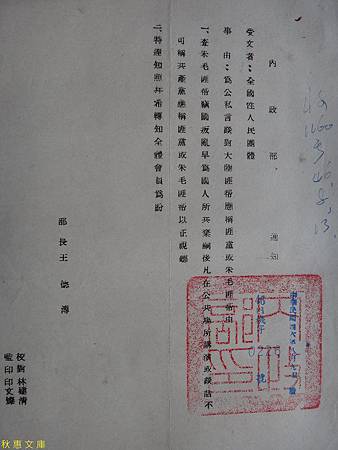 內政部 通知
受文者：全國性人民團體
事由：為公私言談對大陸匪幫應稱匪黨或朱毛匪幫由
一、查朱毛匪幫竊國叛亂早為國人所共棄嗣後凡在公共場所講演或談話不
可稱共產黨應稱匪黨或朱毛匪幫以正視聽
二、特逕知照并希轉知全體會員為盼
部長王德溥
校對林繡清
監印印文燦
秋惠文庫